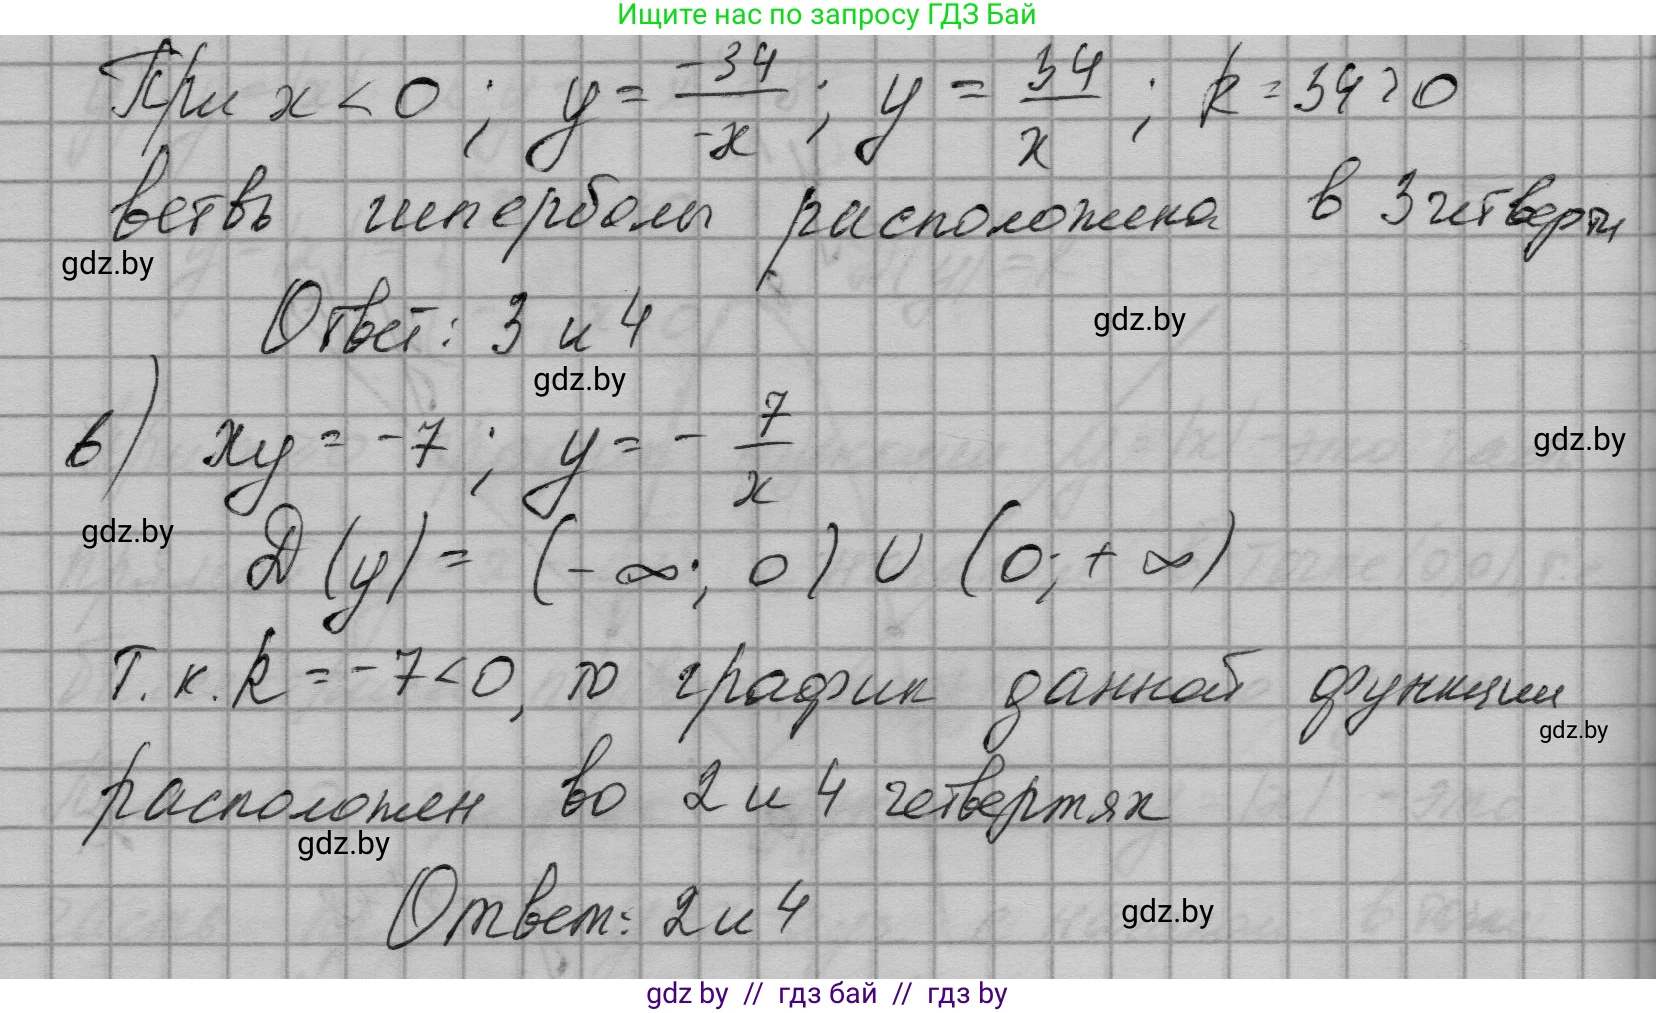 Ищите нас по запросу ГДЗ Бай
При x < 0 ; y = -34/-x ; y = 34/x ; k = 34 > 0
ветвь гиперболы расположена в 3 четверти
gdz.by
Ответ: 3 и 4
gdz.by
gdz.by
в) xy = -7 ; y = - 7/x
gdz.by
gdz.by
D(y) = (-∞; 0) ∪ (0; +∞)
т.к. k = -7 < 0, то график данной функции
gdz.by
расположен во 2 и 4 четвертях
gdz.by
Ответ: 2 и 4
gdz.by
gdz by // гдз бай // гдз by